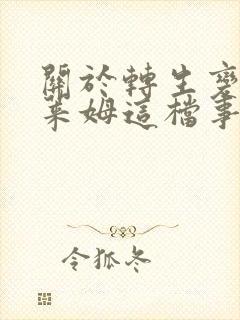 關於轉生變
萊姆這檔事
令狐冬